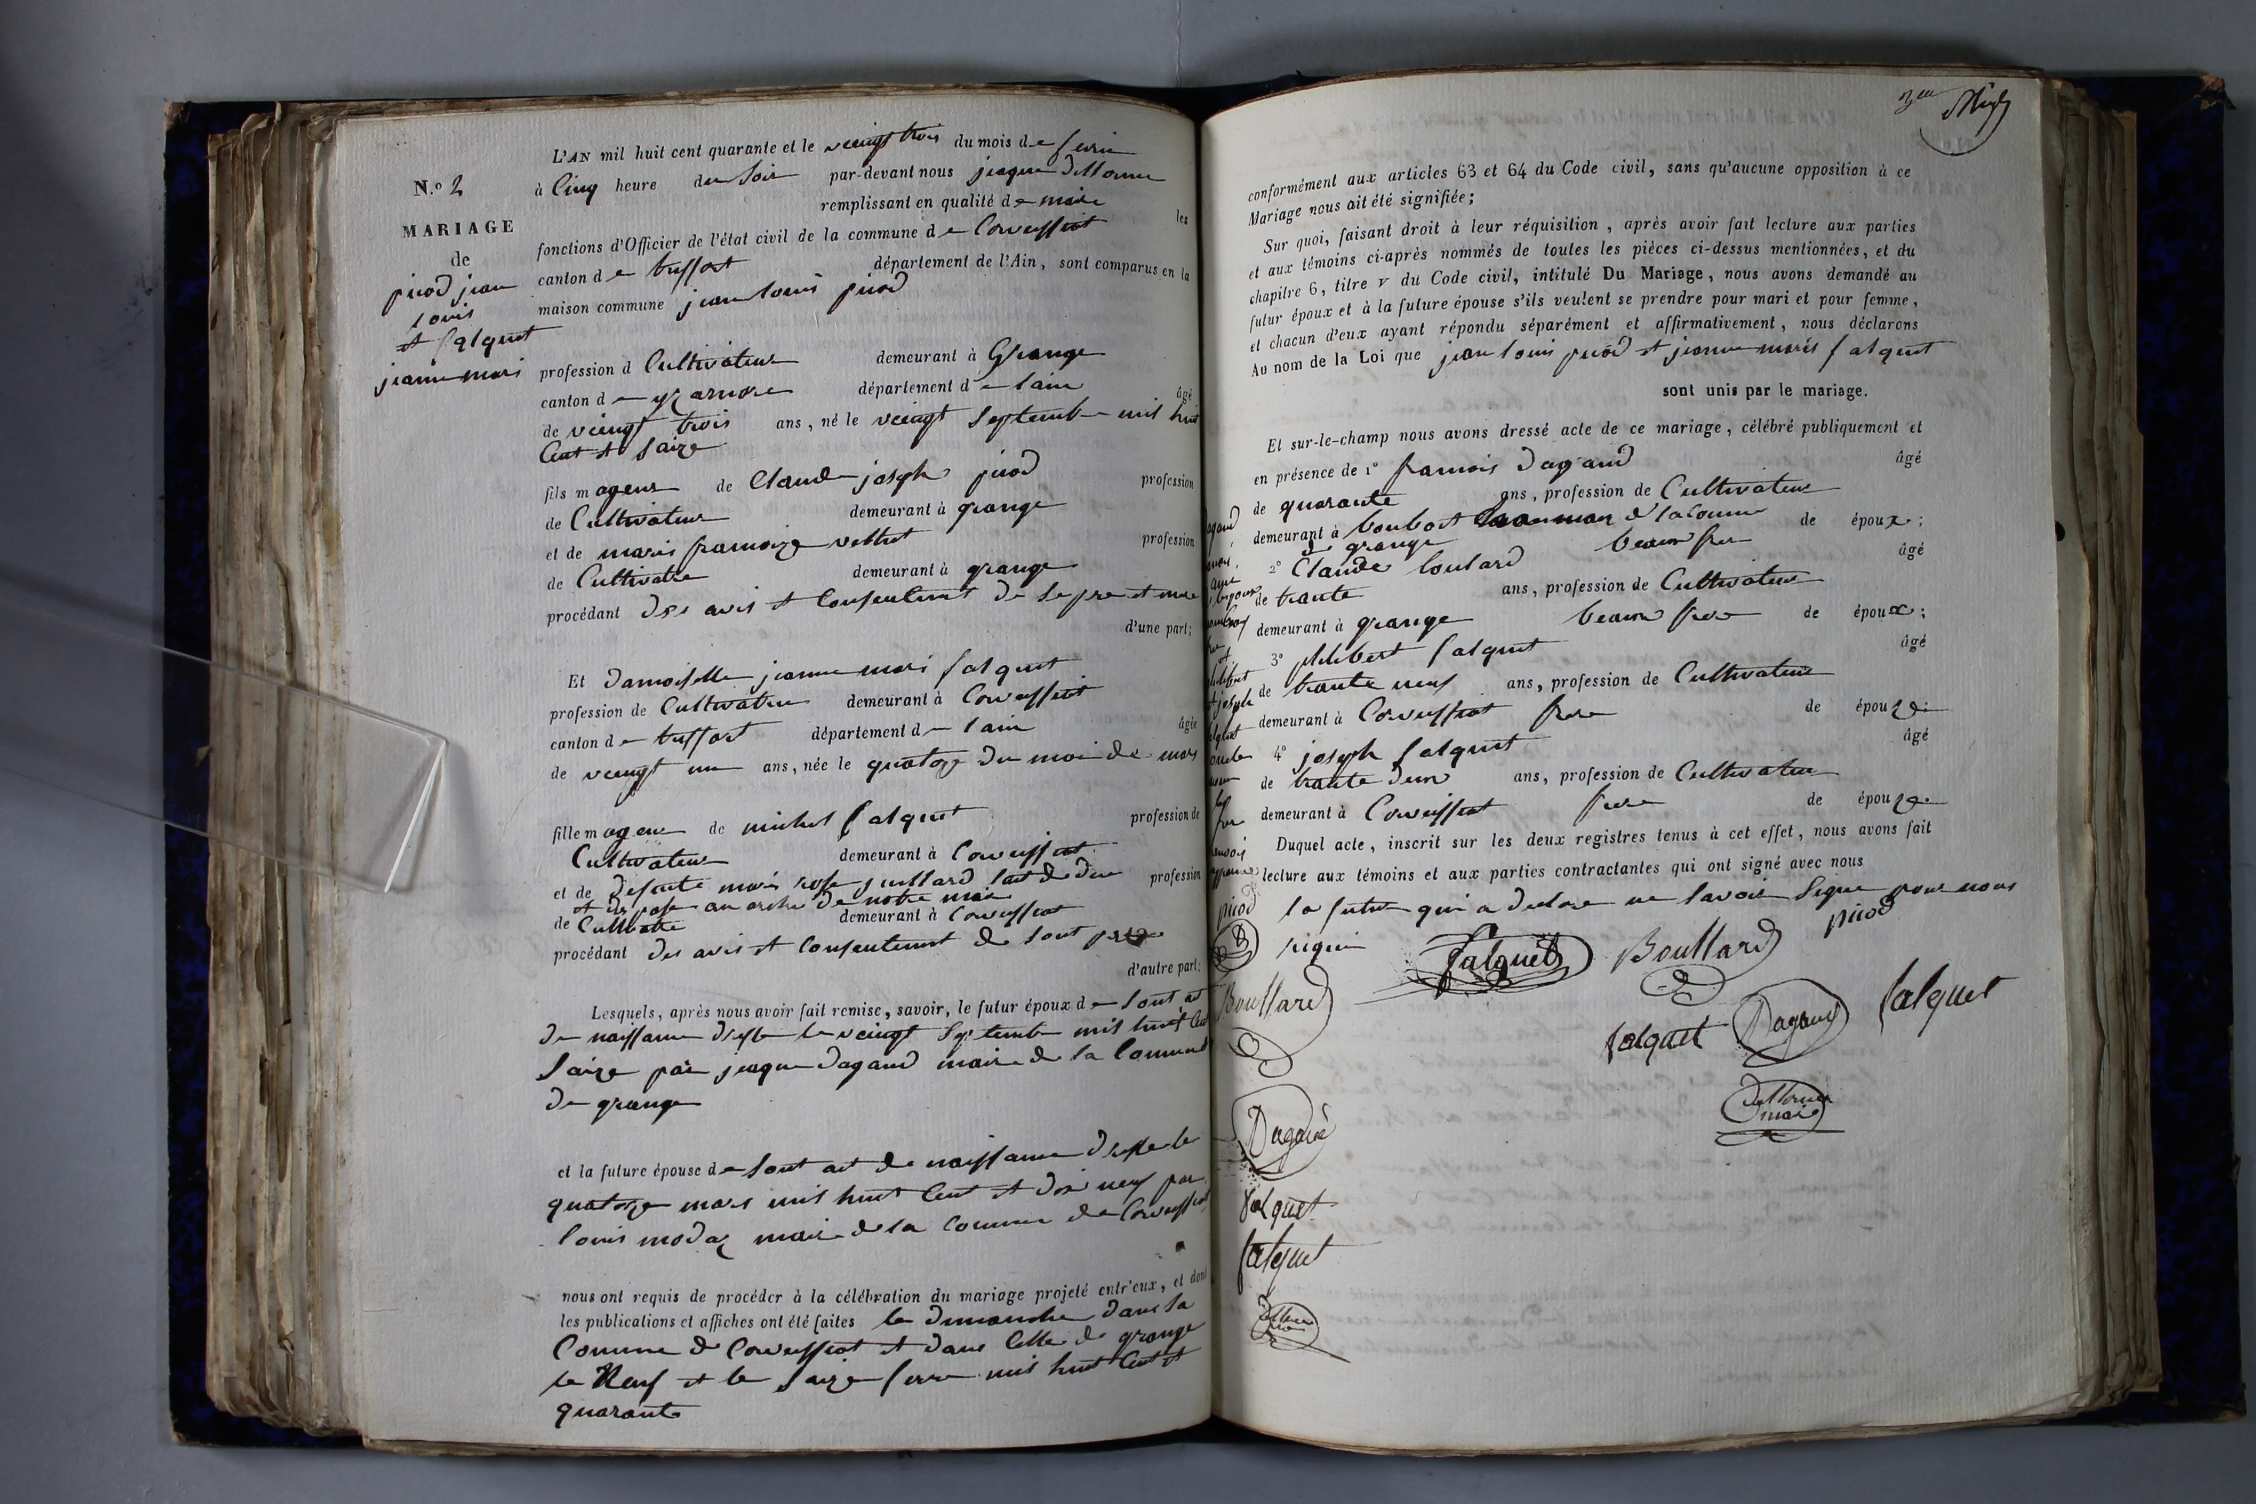 N.º 2
MARIAGE
de
picod jean
louis
et falquet
jeanne mari
L'AN mil huit cent quarante et le veingt trois du mois de fevrie
à Cinq heure du soir par-devant nous jacque
remplissant en qualité de maire les
fonctions d'Officier de l'état civil de la commune de Corveissiat
canton de treffort département de l'Ain, sont comparus en la
maison commune jean louis picod
profession d Cultivateur demeurant à Grange
canton de yzarnore département de lain âgé
de veingt trois ans, né le veingt septembre mil huit
Cent et saize
fils mageur de Claude joseph picod profession
de Cultivateur demeurant à grange
et de marie framoize profession
de Cultivatre demeurant à grange
procédant des avis et consentement de se pre et mere
d'une part;
Et damoiselle jeanne mari falquet
profession de Cultivatrie demeurant à Corveissiat
canton de treffort département de lain âgée
de veingt un ans, née le quatoze du moi de mars
fille mageur de michel falquet profession de
Cultivateur demeurant à Corveissiat
et de defunte marie rose juillard profession
et deposé au archi de notre mairi
de Cultivatre demeurant à Corveissiat
procédant des avis et consentement de sont pere
d'autre part;
Lesquels, après nous avoir fait remise, savoir, le futur époux de sont at
de naissance le veingt septembre mil huit Cent
saize par jacque dagand maire de la Commune
de grange
et la future épouse de sont act de naissance le
quatorze mars mil huit Cent et dix neuf par
louis modaz maire de la Commune de Corveissiat
nous ont requis de procéder à la célébration du mariage projeté entr'eux, et dont
les publications et affiches ont été faites le dimanche dans la
Commune de Corveissiat et dans Celle de grange
le Neuf et le saize fevrie mil huit Cent et
quarante
conformément aux articles 63 et 64 du Code civil, sans qu'aucune opposition à ce
Mariage nous ait été signifiée;
Sur quoi, faisant droit à leur réquisition, après avoir fait lecture aux parties
et aux témoins ci-après nommés de toutes les pièces ci-dessus mentionnées, et du
chapitre 6, titre v du Code civil, intitulé Du Mariage, nous avons demandé au
futur époux et à la future épouse s'ils veulent se prendre pour mari et pour femme,
et chacun d'eux ayant répondu séparément et affirmativement, nous déclarons
Au nom de la Loi que jean louis picod et jeanne marie falquet
sont unis par le mariage.
Et sur-le-champ nous avons dressé acte de ce mariage, célébré publiquement et
en présence de 1º framois dagand âgé
de quarante ans, profession de Cultivateur
demeurant à de époux;
de grange beaux frer
2º Claude âgé
de trante ans, profession de Cultivateur
demeurant à grange beaux frere de époux;
3º philibert falquet âgé
de trante neuf ans, profession de Cultivateur
demeurant à Corveissiat frere de épouze
4º joseph falquet âgé
de trante deux ans, profession de Cultivateur
demeurant à Corveissiat frere de épouze
Duquel acte, inscrit sur les deux registres tenus à cet effet, nous avons fait
lecture aux témoins et aux parties contractantes qui ont signé avec nous
la future qui a declare ne savoir signe pour nous
signie
picod
falquet
Boullard
picod
Boullard
falquet
Dagand
falquet
maire
Dagand
falquet
falquet